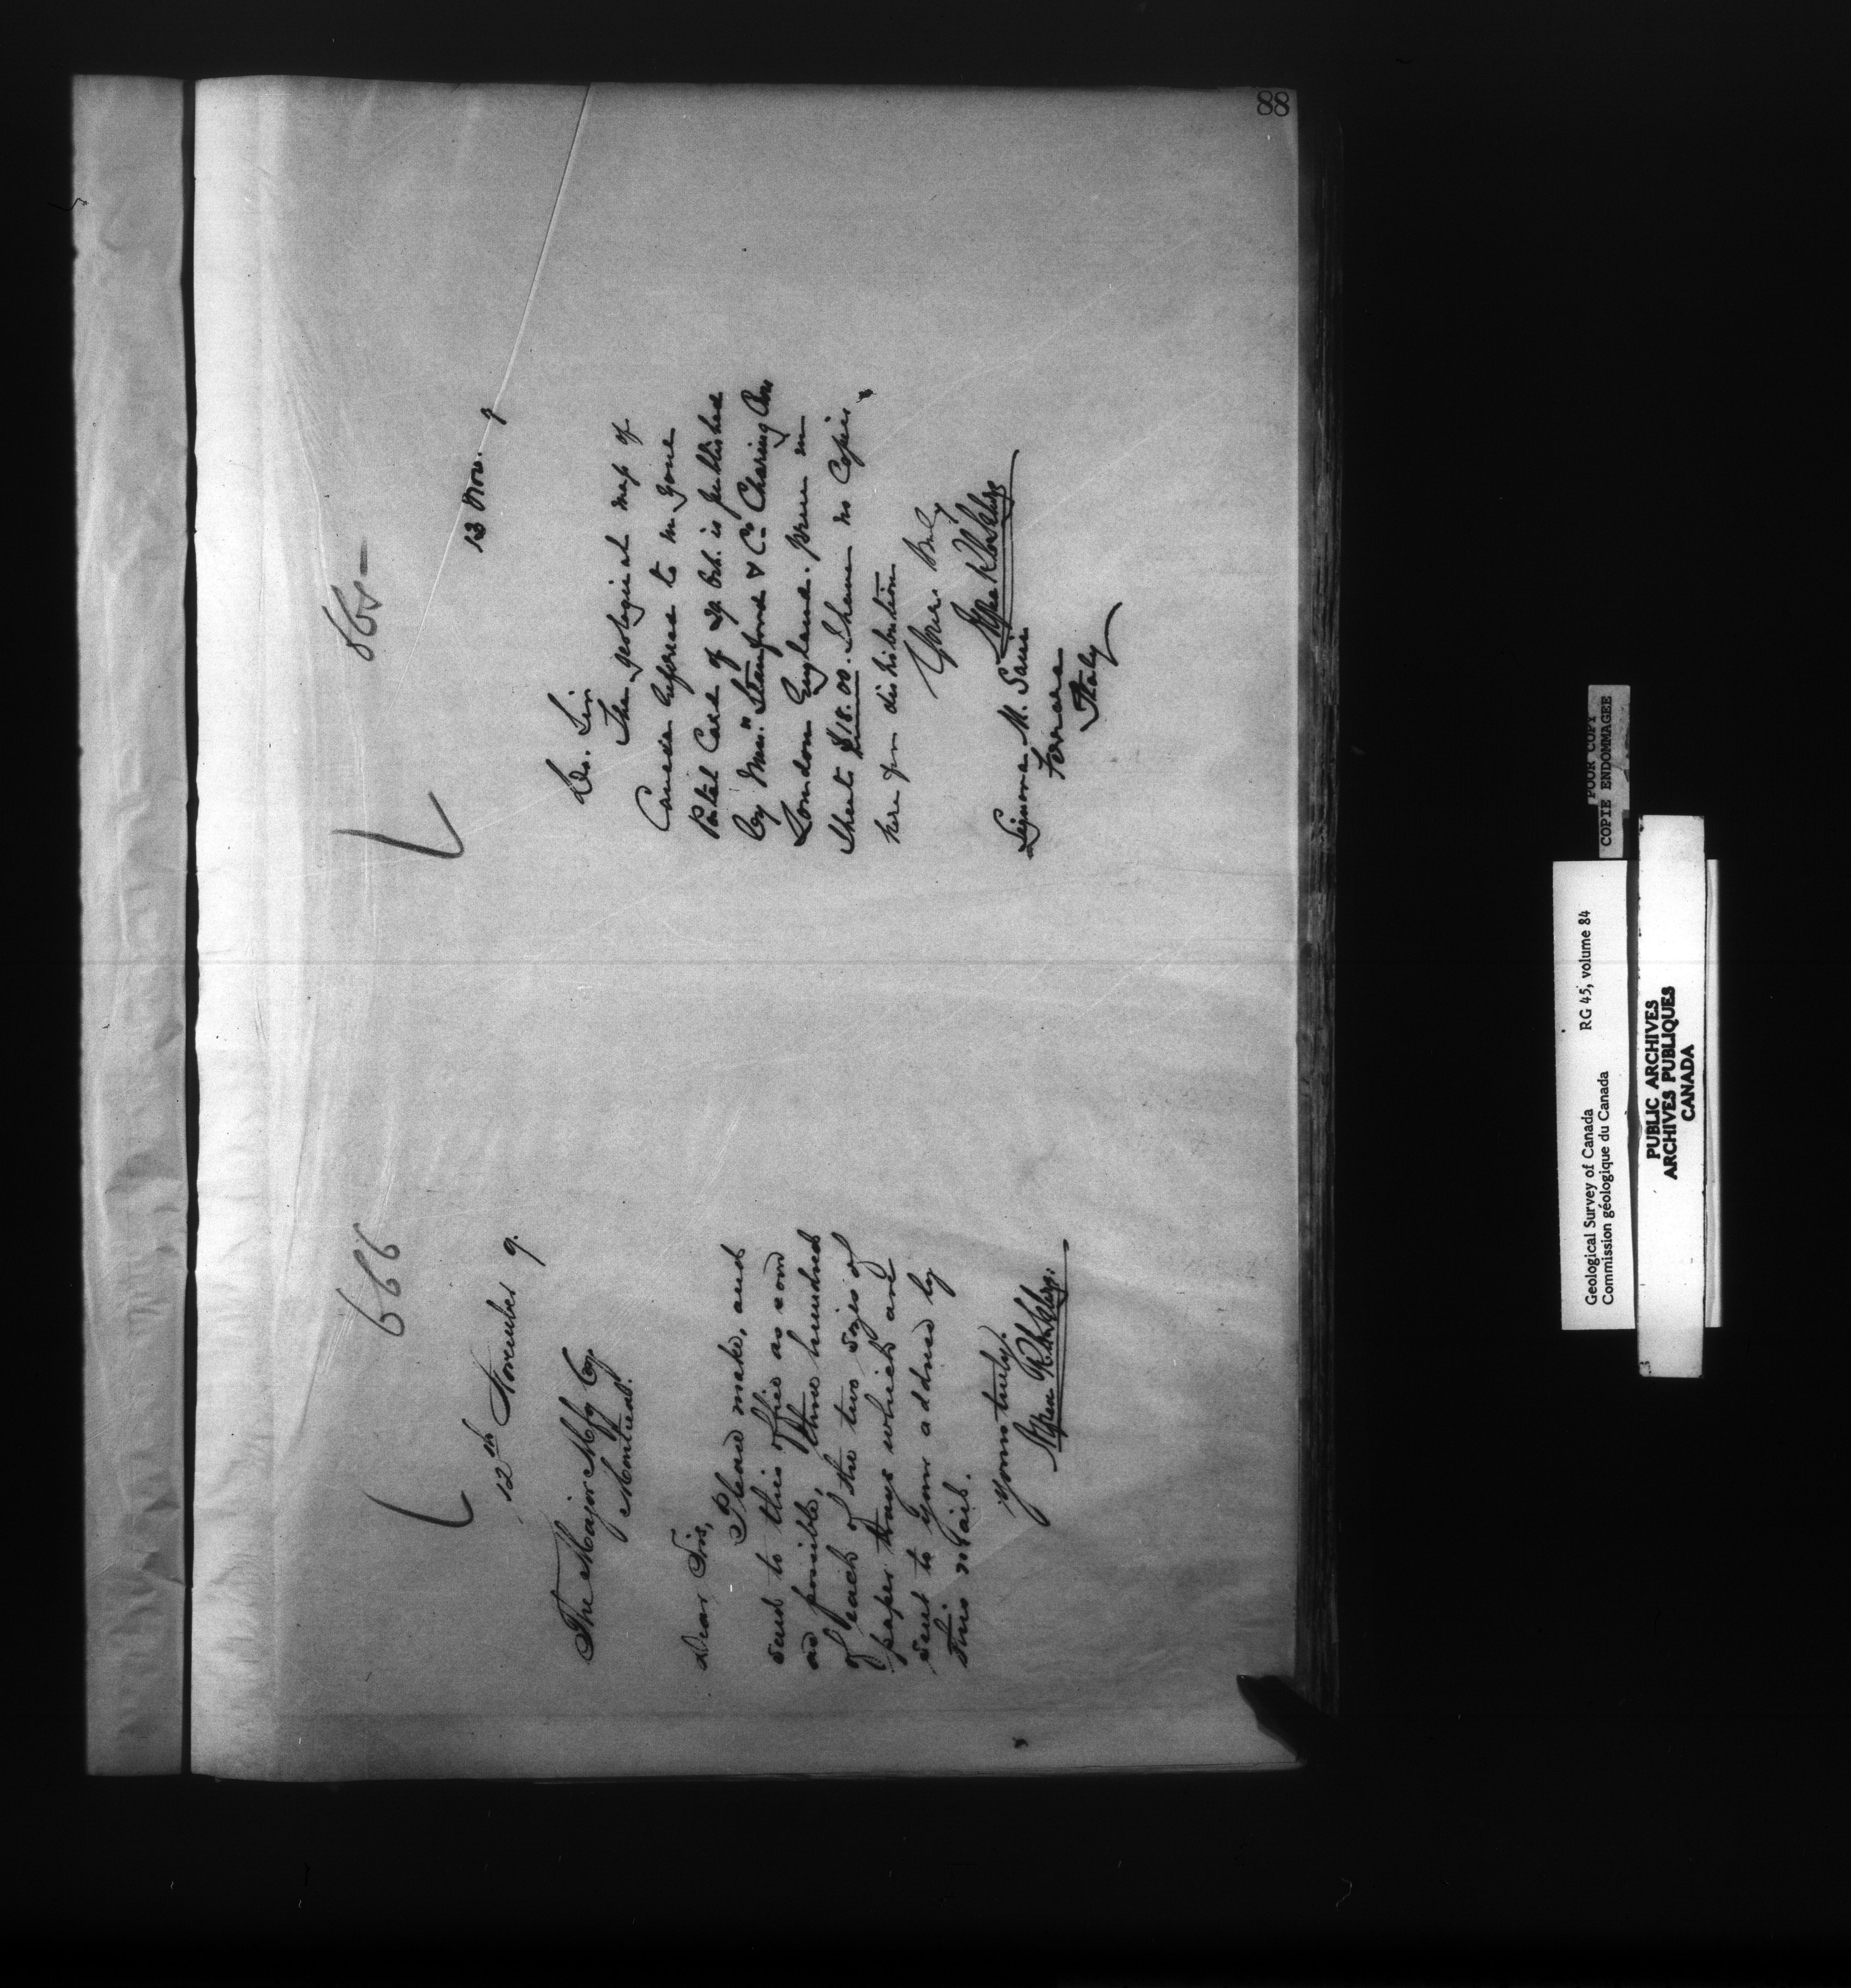 88
666
12th November 9.
The Major Mfg Coy.
Montreal.
Dear Sirs,
Please make, and
send to this office as soon
as possible, three hundred
of each of the two sizes of
paper trays which are
sent to your address by
this mail.
Yours truly.
865
13 Nov. 9
Dr. Sir
The geological map of
Canada referred to in your
Postal Card of Oct. is published
by Mess.rs Stanford & Co. Charing Cross
London England. Price in
Sheets $18.00. I have no Copies
here for distribution
Yours truly
Signore M.
Ferrara
Italy
POOR COPY
COPIE ENDOMMAGEE
Geological Survey of Canada RG 45, volume 84
Commission géologique du Canada
PUBLIC ARCHIVES
ARCHIVES PUBLIQUES
CANADA